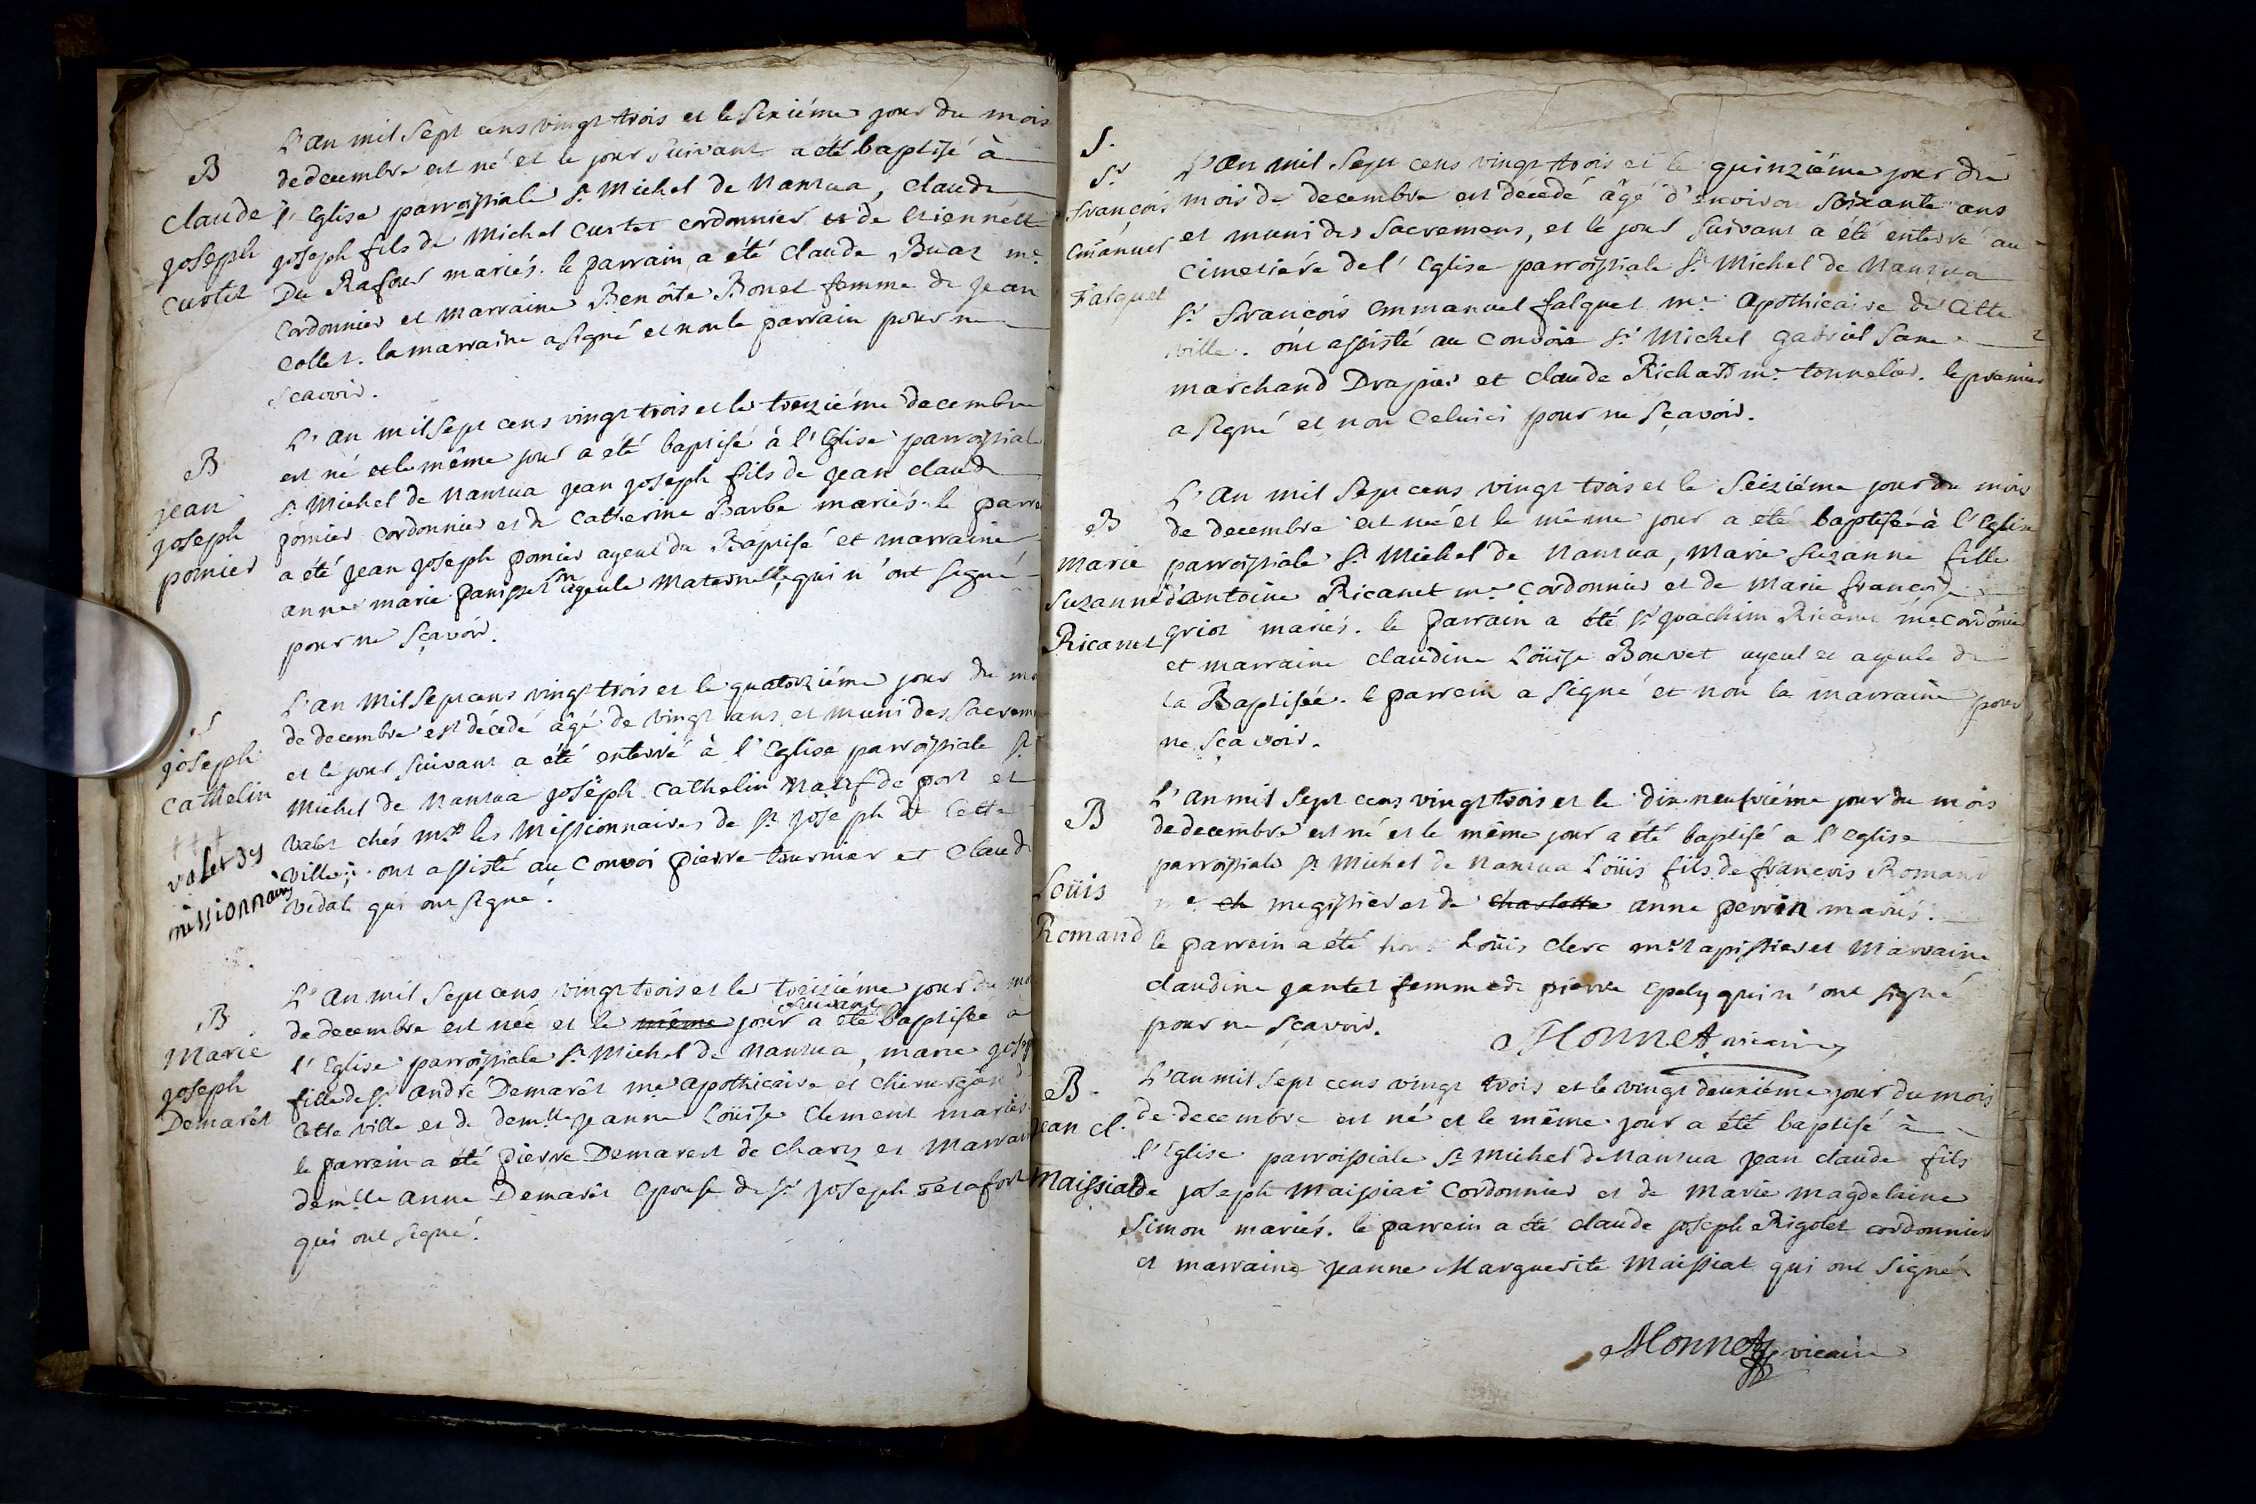 B
Claude
joseph
Curtet
L'an mil sept cens vingt trois et le sixiéme jour du mois
de decembre est né et le jour suivant a été baptisé à
l'Eglise parroissiale St Michel de Nantua, claude
joseph fils de Michel Curtet cordonnier et de Etiennette
Du Rafour mariés. le parrain a été Claude Buat me
Cordonnier et marraine Benoite Bonet femme de Jean
Collet. la marraine a signé et non le parrain pour ne
scavoir.
B
jean
joseph
pomier
L'an mil sept cens vingt trois et le treiziéme decembre
est né et le même jour a été baptisé à l'Eglise parroissiale
St Michel de Nantua jean joseph fils de jean claude
pomier cordonnier et de Catherine Barbe mariés. le parra
a été jean joseph pomier ayeul du Baptisé et marraine
anne marie panisset son ayeule maternelle, qui n'ont signé
pour ne sçavoir.
S
joseph
Cathelin
valet des
missionnaires
L'an mil sept cens vingt trois et le quatorziéme jour du mo
de decembre est décedé âgé de vingt ans, et muni des sacrem
et le jour suivant a été enterré à l'Eglise parroissiale St
Michel de Nantua joseph Cathelin natif de port et
valet chés mrs les Missionnaires de St joseph de cette
ville. ont assisté au convoi pierre tournier et claude
vidal qui ont signé.
B
Marie
joseph
Demarêt
L'an mil sept cens vingt trois et le treiziéme jour du mo
de decembre est née et le même jour suivant a été baptisée a
l'Eglise parroissiale St Michel de Nantua, marie josep
fille de Sr andré Demarêt me apothicaire et chirurgien
cette ville et de demlle jeanne Loüise Clement mariés.
le parrein a été pierre Demarest de charix et marrain
demlle anne Demarêt Epouse de Sr joseph delafort
qui ont signé.
S.
Sr
françois
Emanuel
Falquet
L'an mil sept cens vingt trois et le quinziéme jour du
mois de decembre est decedé âgé d'environ soixante ans
et muni des sacremens, et le jour suivant a été enterré au
Cimetiére de l'Eglise parroissiale St Michel de Nantua
Sr françois Emmanuel falquet me apothicaire de cette
ville. ont assisté au convoi Sr Michel gabriel
marchand Drapier et claude Richard me tonnelier. le premier
a signé et non celuici pour ne sçavoir.
B
Marie
Suzanne
Ricanet
L'an mil sept cens vingt trois et le seiziéme jour du mois
de decembre est née et le même jour a été baptisée à l'Eglise
parroissiale St Michel de Nantua, Marie Suzanne fille
d'antoine Ricanet me cordonnier et de marie françoise
griot mariés. le parrain a été Sr joachim Ricanet me cordonier
et marraine claudine Loüise Bouvet ayeul et ayeule de
la Baptisée. le parrein a signé et non la marraine pour
ne sçavoir.
B
Loüis
Romand
L'an mil sept cens vingt trois et le dix neufviéme jour du mois
de decembre est né et le même jour a été baptisé a l'Eglise
parroissiale St Michel de Nantua Loüis fils de françois Romand
me ch megissier et de charlotte anne perrin mariés.
le parrein a été Loüis clerc me tapissier et Marraine
claudine jantet femme de pierre Epely qui n'ont signé
pour ne sçavoir.
Monnet, vicaire
B
jean cl.
Maissiat
L'an mil sept cens vingt trois et le vingt deuxiéme jour du mois
de decembre est né et le même jour a été baptisé à
l'Eglise parroissiale St Michel de Nantua jean claude fils
de joseph Maissiat Cordonnier et de Marie magdelaine
Simon mariés. le parrein a été claude joseph Rigolet cordonnier
et marraine jeanne Marguerite Maissiat qui ont signé
Monnet vicaire